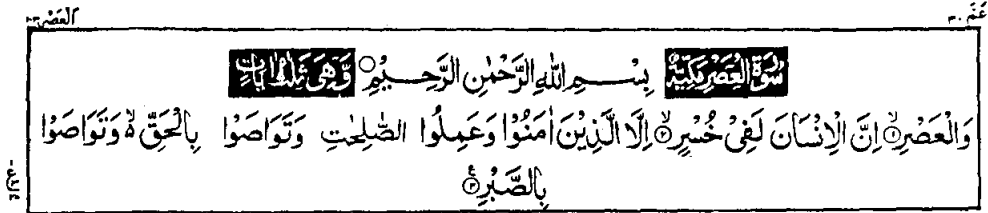 عَمَّ ٣٠ اَلْعَصْر ١٠٣
سُوْرَةُ الْعَصْرِ مَكِّيَّةٌ بِسْمِ اللهِ الرَّحْمٰنِ الرَّحِيْمِ ○ وَّهِيَ ثَلٰثُ اٰيَاتٍ
وَالْعَصْرِ ۙ﴿١﴾ اِنَّ الْاِنْسَانَ لَفِيْ خُسْرٍ ۙ﴿٢﴾ اِلَّا الَّذِيْنَ اٰمَنُوْا وَعَمِلُوا الصّٰلِحٰتِ وَتَوَاصَوْا بِالْحَقِّ ۙ۬ وَتَوَاصَوْا
بِالصَّبْرِ ﴿٣﴾